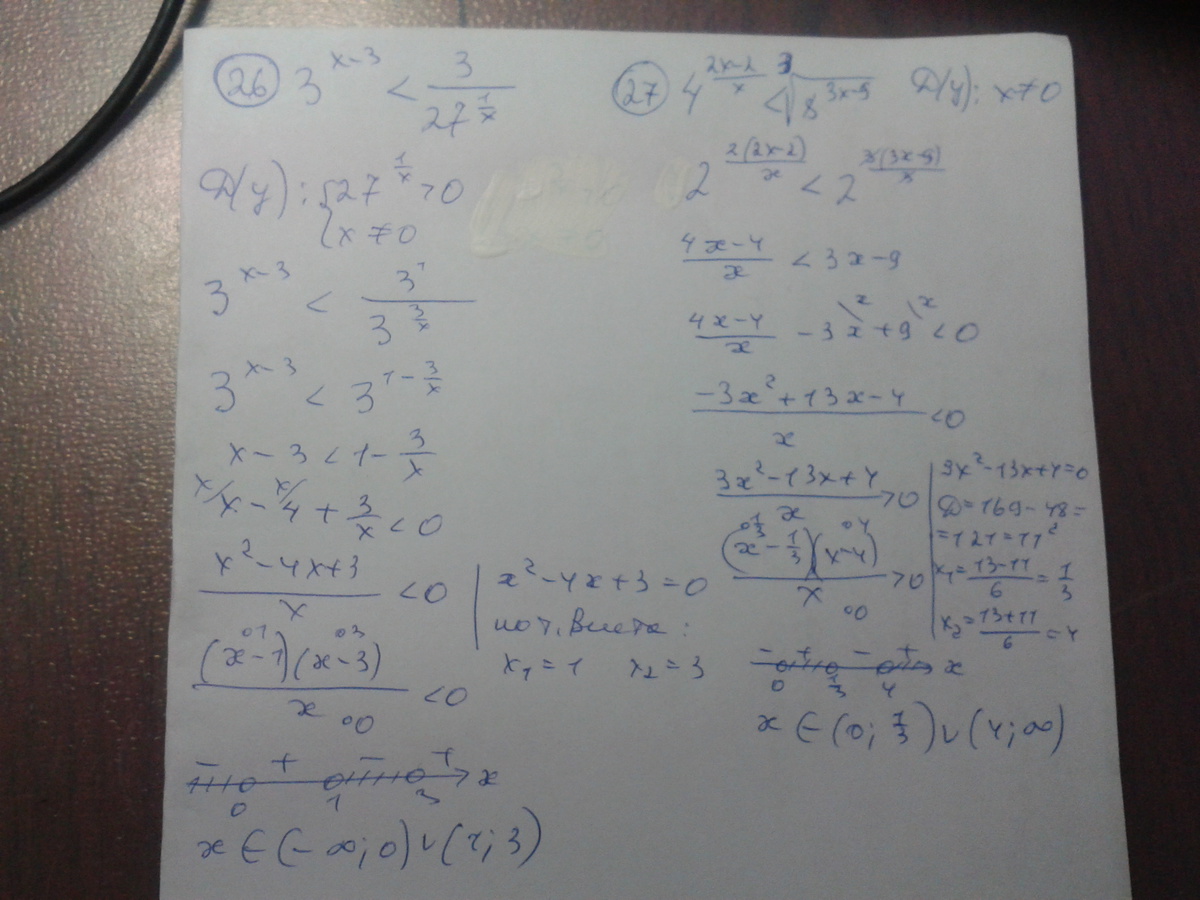 26 3^(x-3) < 3/27^(1/x)
Д(у): { 27^(1/x) > 0
x ≠ 0
3^(x-3) < 3^1/3^(3/x)
3^(x-3) < 3^(1-3/x)
x - 3 < 1 - 3/x
x/ x - x/ 4 + 3/x < 0
(x² - 4x + 3)/x < 0
x² - 4x + 3 = 0
по т. Виета:
x₁ = 1 x₂ = 3
(x-1)(x-3)/x < 0
∘1 ∘3 ∘0
- + - + x
0 1 3
x ∈ (-∞; 0) ∪ (1; 3)
27 4^((2x-2)/x) < ∛(8^(3x-9)) Д(у): x ≠ 0
2^(2(2x-2)/x) < 2^(3(3x-9)/3)
(4x-4)/x < 3x - 9
(4x-4)/x - 3x \x + 9 \x < 0
(-3x² + 13x - 4)/x < 0
(3x² - 13x + 4)/x > 0
3x² - 13x + 4 = 0
Д = 169 - 48 =
= 121 = 11²
x₁ = (13-11)/6 = 1/3
x₂ = (13+11)/6 = 4
(x - 1/3)(x-4)/x > 0
∘1/3 ∘4 ∘0
- + - + x
0 1/3 4
x ∈ (0; 1/3) ∪ (4; ∞)